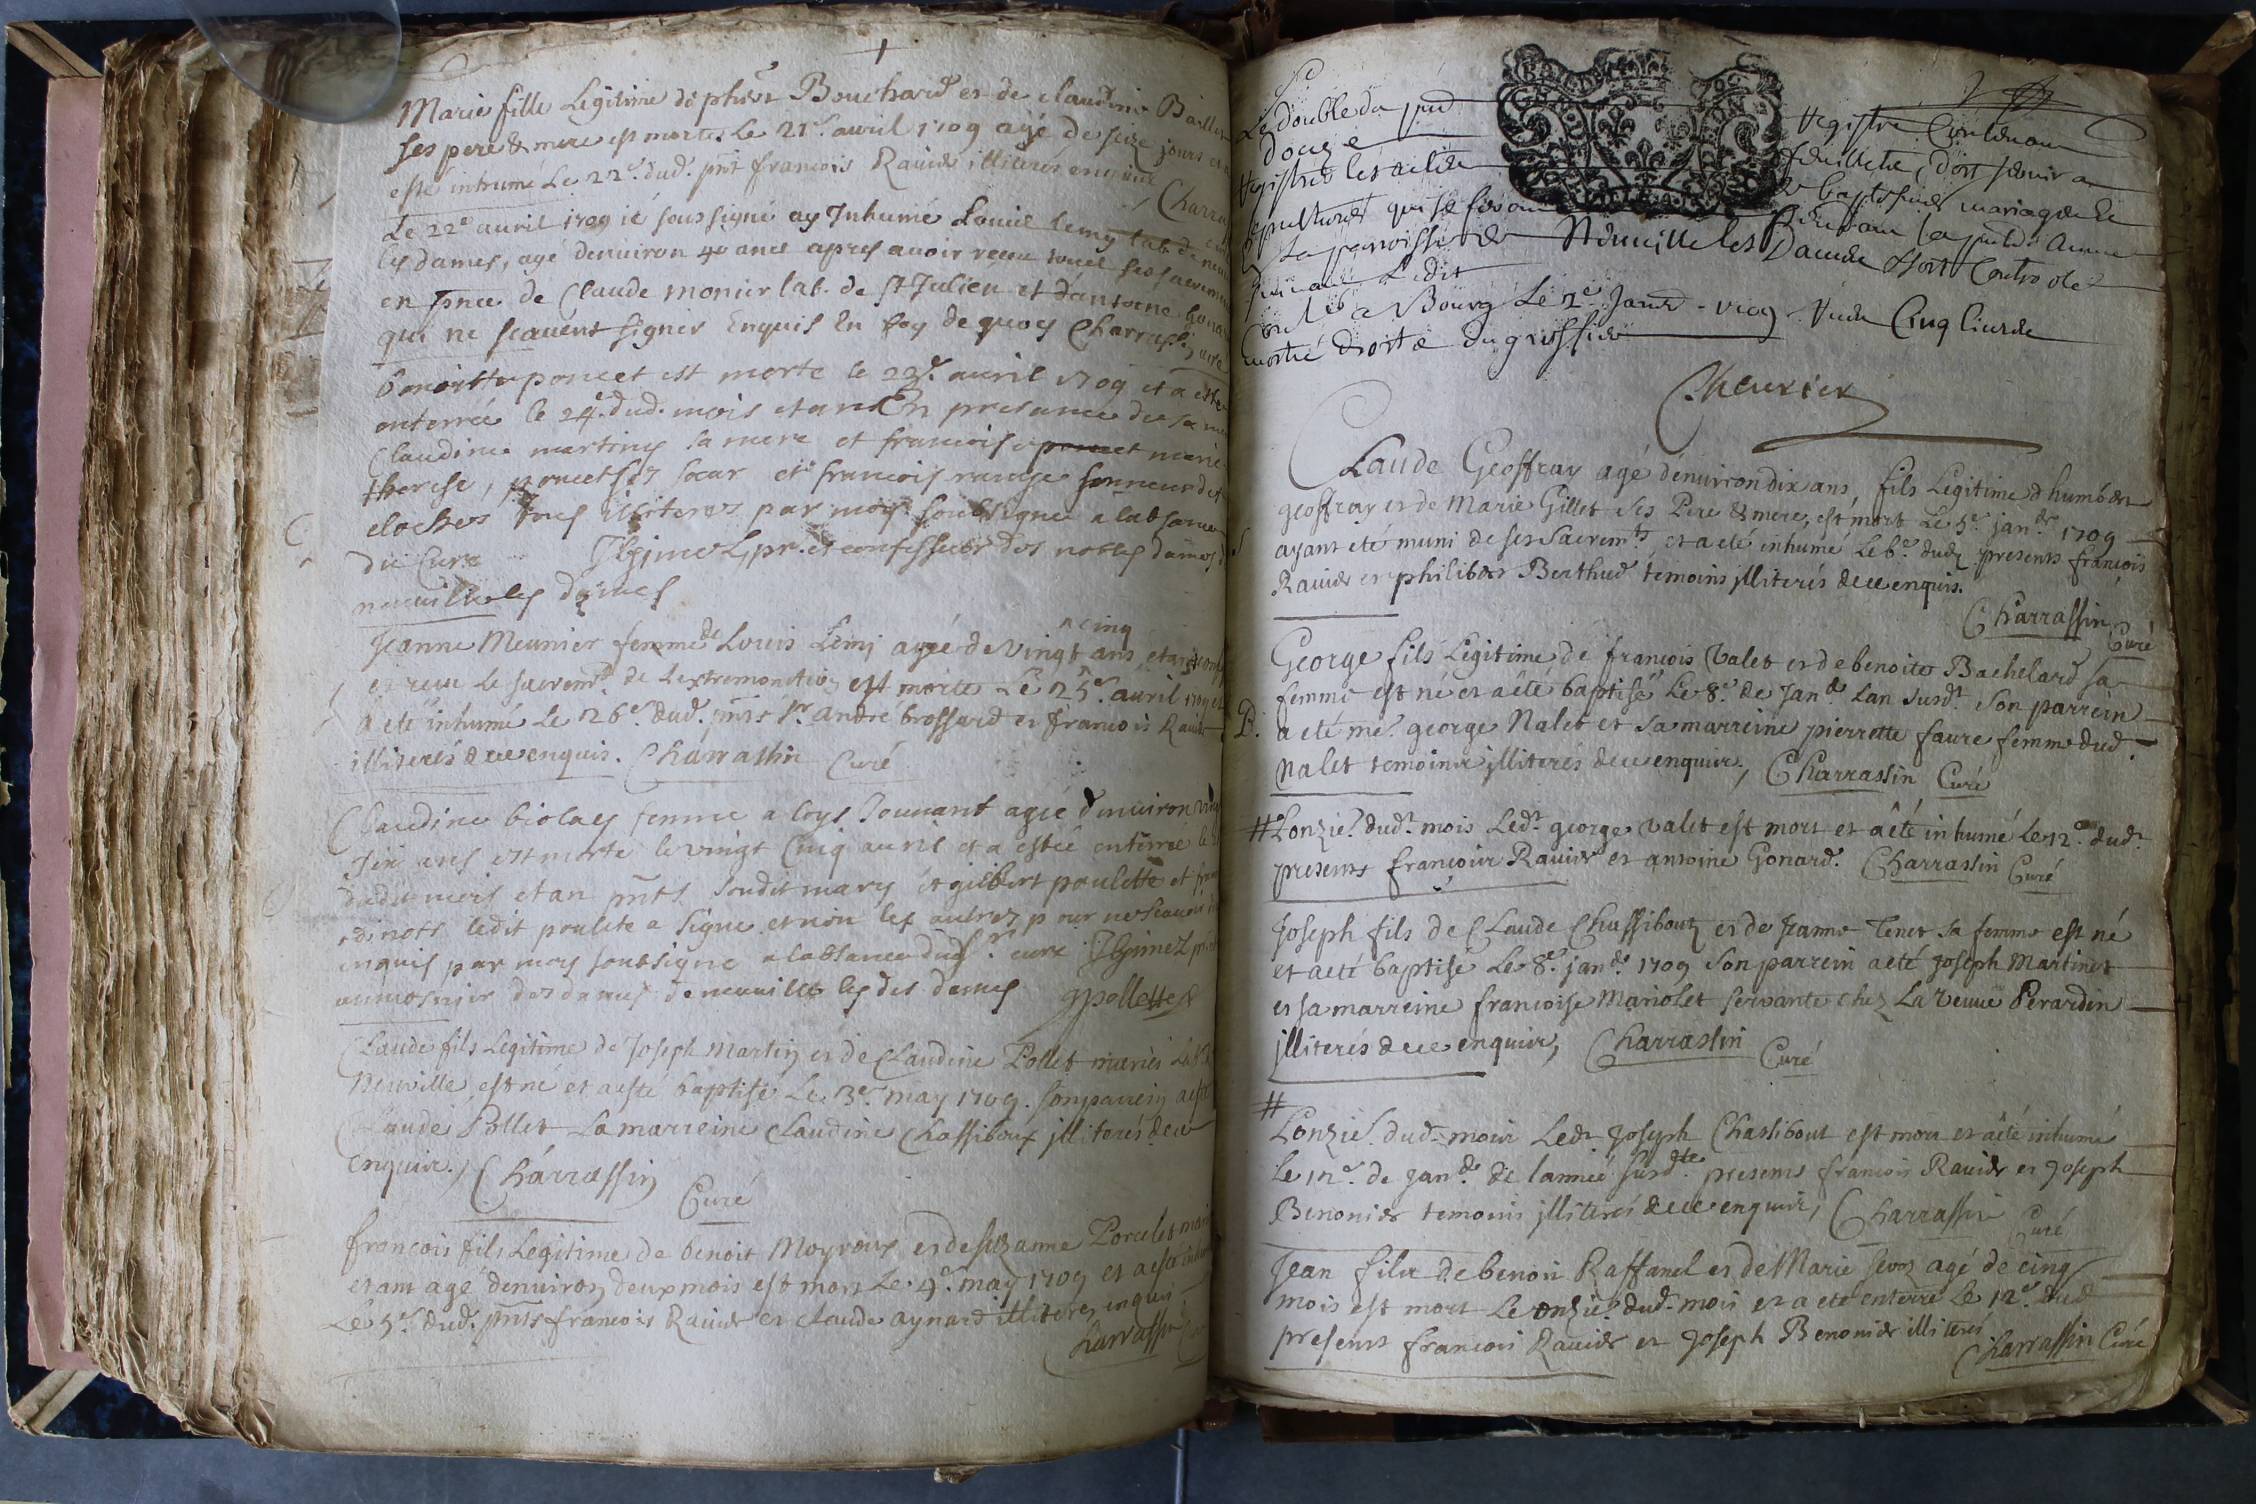 Marie fille Legitime de phert Bouchard et de claudine Baillet
ses pere & mere est morte Le 21e avril 1709 agé de seize jours et a
esté inhumé Le 22e dud. pnt francois Ravier illiteres enquis
Charra
Le 22e avril 1709 ié soussigné ay Inhumé Louis lemy lab de neu
les dames, agé denuiron 40 ans apres auoir receu tous ses sacremen
en pnce de Claude monier lab. de st Julien et dantoene gona
qui ne scauent signer Enquis En foy de quoy Charrassin cure
benoitte poncet est morte le 23e avril 1709 et a esté
enterrée le 24e dud. mois et an En presance de sa
Claudine martiny sa mere et francoise poncet marie
therese, poncet ses soear et francois ravyé sonneur des
cloches tous illiteres par moy soubsigné a labsance
du Curé Jljime pr. et confesseur des nobles dames d
neuville les dames
Jeanne Meunier femme de Louis Lemj agée de vingt cinq ans étant
et receu le sacremt de lextremonction est morte Le 25e avril 1709 et
a eté inhumé Le 26e dud. pnts sr. andré brossard et francois Ravier
illiterés de ce enquis. Charrassin Curé
Claudine biolay femme a loys Jouuant agée denuiron vingt
six ans est morte le vingt Cinq auril et a estée enterrée le
dudit mois et an pnts. soudit mary et gilbert poulette et
ledit poulete a signe et non les autres pour ne scauoir
enquis par moy soussigne a labsance dud sr. cure
aumosnier des dames de neuville les des dames gpollette
Claude fils Legitime de Joseph Martin et de Claudine Pollet mariés Lab
Neuville est né et aesté baptisé Le 3e may 1709. son parrein aesté
Claude Pollet La marreine Claudine Chassiboux jlliterés de ce
enquis., Charrassin
Curé
francois fils Legitime de benoit Moyroux et de suzanne Porcelet mari
etant agé denuiron deux mois est mort Le 4e. may 1709 et aesté inhum
Le 5e. dud. pnts francois Ravier et claude aynard illiteres enquis
Charrassin
Le double du pnt Registre Contenant
douze feuillets, doit seruir a
Registrer les actes de baptesmes mariages Et
sepultures qui se feront pendant la pnte Année
En La parroisse de Neuville les Dames Et Controlé
suiuant L'edit
Con lé a Bourg Le 2e Janr Cinq liures
moitié droit du greffier
Cheurier
Claude Geoffray agé denuiron dix ans, fils Legitime d humbert
geoffray et de Marie Gillet ses Pere & mere, est mort Le 5e. janer 1709
ayant eté muni de ses sacremts. et a eté inhumé Le 6e. dud presents francois
Ravier et philibert Berthud temoins jlliterés de ce enquis.
Charrassin
Curé
George fils Legitime de francois Valet et de benoite Bachelard sa
femme est né et a été baptisé Le 8e. de Janer Lan susdt son parrein
B. a eté me. george Nalet et sa marreine pierrette faure femme dud.
Nalet temoins jlliterés de ce enquis, Charrassin Curé
# Lonzie. dudt mois Ledt george valet est mort et a été inhumé Le 12e. dudt
presents francois Ravier et antoine Gonard. Charrassin Curé
Joseph fils de Claude Chassibout et de Jeanne Tenet sa femme est né
et aeté baptisé Le 8e. janer 1709 son parrein aeté Joseph Martinet
et sa marreine francoise Mariolet servante chez La veuue Perardin
jlliterés de ce enquis, Charrassin Curé
#
Lonzie. dud. mois Ledt Joseph Chassibout est mort et a été inhumé
Le 12e. de Janer de lannée susdte presents francois Ravier et Joseph
Benonier temoins jlliterés de ce enquis, Charrassin Curé
Jean fils de benoit Raffanel et de Marie sevoz agé de cinq
mois est mort Le onzie. dud. mois et a eté enterré Le 12e. dud
presents francois Ravier et Joseph Benonier illiterés
Charrassin Curé